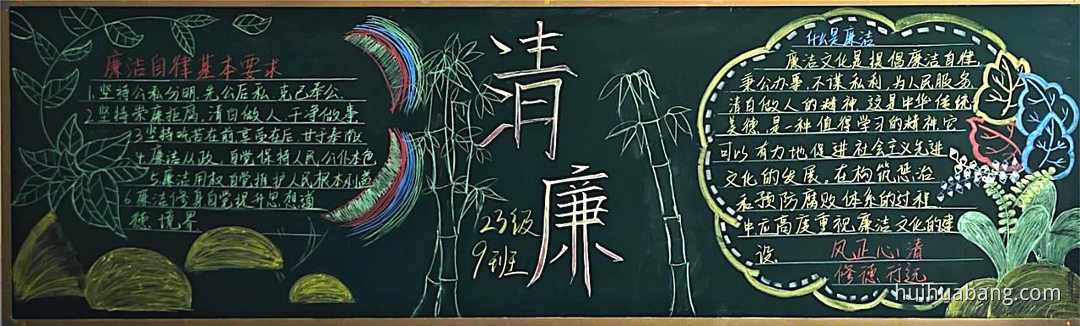 廉洁自律基本要求
1.坚持公私分明,先公后私,克己奉公
2.坚持崇廉拒腐,清白做人,干净做事
3.坚持吃苦在前,享受在后,甘于奉献
4.廉洁从政,自觉保持人民公仆本色
5.廉洁用权,自觉维护人民根本利益
6.廉洁修身,自觉提升思想道
德境界
清
廉
23级
9班
什么是廉洁
廉洁文化是提倡廉洁自律
秉公办事,不谋私利,为人民服务
清白做人的精神,这是中华传统
美德,是一种值得学习的精神,它
可以有力地促进社会主义先进
文化的发展,在构筑惩治
和预防腐败体系的过程
中应高度重视廉洁文化的建
设
风正心清
修德行远
huihuabang.com